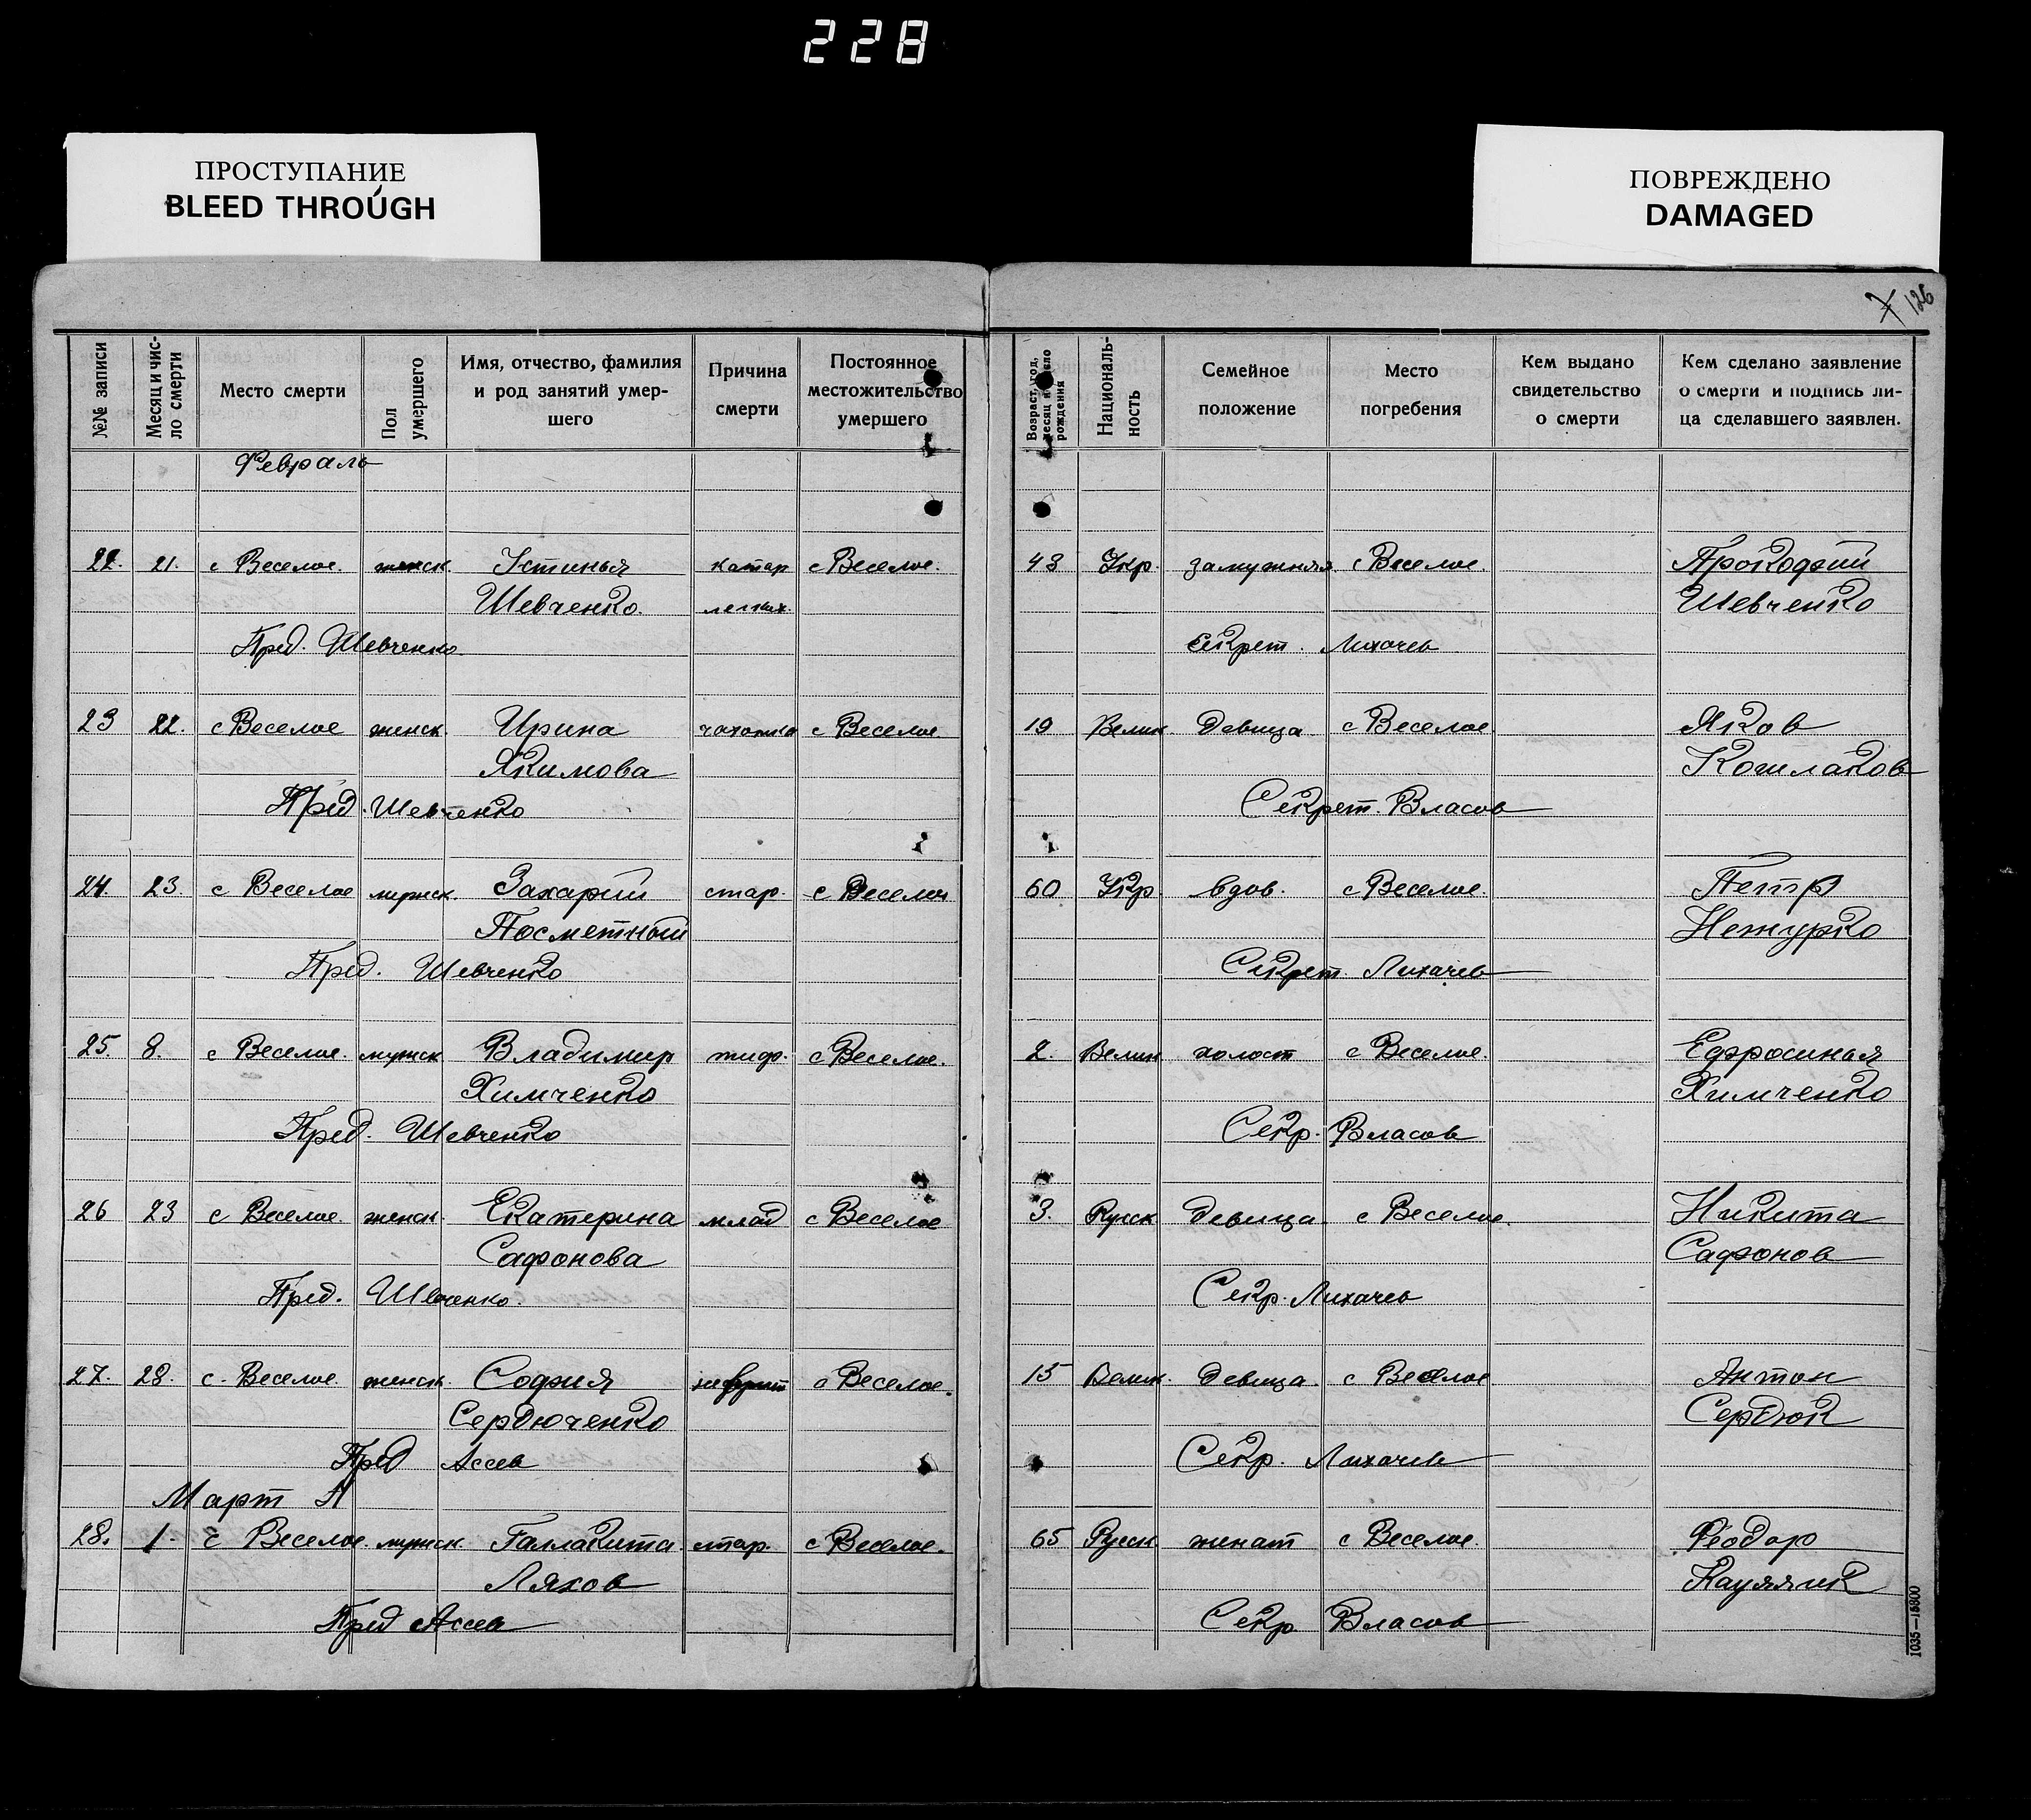 228
ПРОСТУПАНИЕ
BLEED THROUGH
ПОВРЕЖДЕНО
DAMAGED
7 126
№№ записи
Месяц и чис-
ло смерти
Место смерти
Пол
умершего
Имя, отчество, фамилия
и род занятий умер-
шего
Причина
смерти
Постоянное
местожительство
умершего
Возраст, год,
месяц и число
рождения
Националь-
ность
Семейное
положение
Место
погребения
Кем выдано
свидетельство
о смерти
Кем сделано заявление
о смерти и подпись ли-
ца сделавшего заявлен.
Февраль
22. 21. с Веселое. женск. Устинья катар с Веселое. 43 Укр. замужняя с Веселое. Прокофий
Шевченко. легких. Шевченко
Пред. Шевченко. Секрет. Лихачев
23 22. с Веселое женск. Ирина чахотка с Веселое. 19 Велик. девица с Веселое. Яков
Якимова Кошлаков
Пред. Шевченко Секрет. Власов
24. 23. с Веселое мужск. Захарий стар. с Веселое 60 Укр. вдов. с Веселое. Петр
Посметный Нетурко
Пред. Шевченко Секрет. Лихачев
25. 8. с Веселое. мужск Владимир тиф. с Веселое. 2. Велик холост с Веселое. Ефросинья
Химченко Химченко
Пред. Шевченко Секр. Власов
26 23 с Веселое. женск. Екатерина млад с Веселое 3. Русск девица с Веселое. Никита
Сафонова Сафонов
Пред. Шевченко. Секр. Лихачев
27. 28. с. Веселое. женск. София нефрит с Веселое. 15 Велик. девица с Веселое Антон
Сердюченко Сердюк
Пред Асеев Секр. Лихачев
Март
28. 1. с Веселое. мужск. Галлактита стар. с Веселое. 65 Русск женат с Веселое. Феодор
Ляхов
Пред Асеев Секр Власов
1035—15800